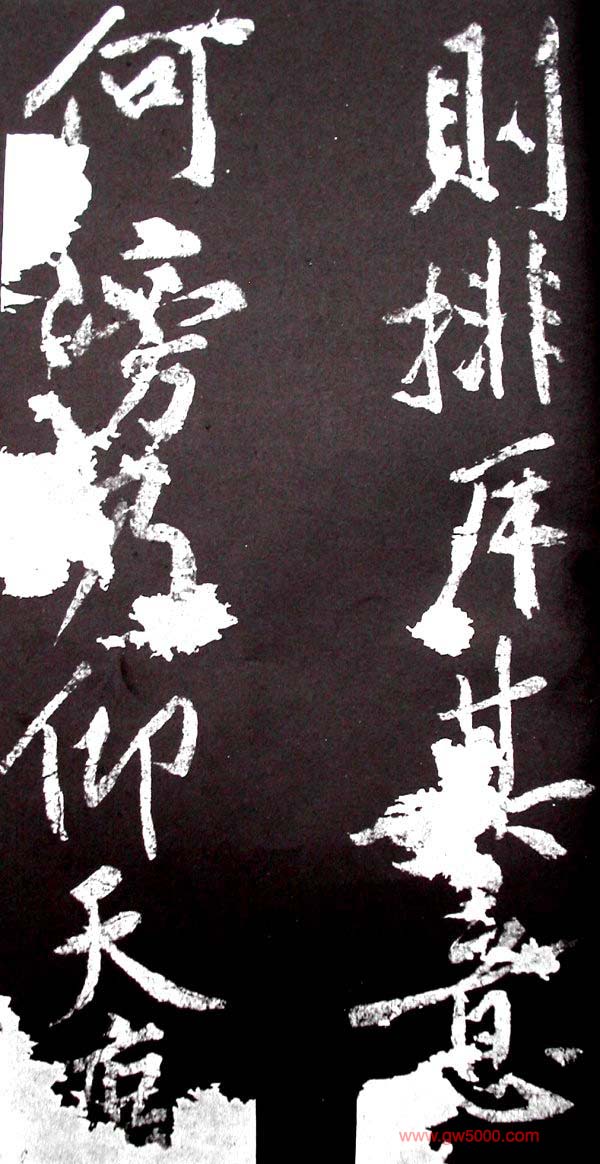 則排斥其意
何滂仰天
www.gw5000.com